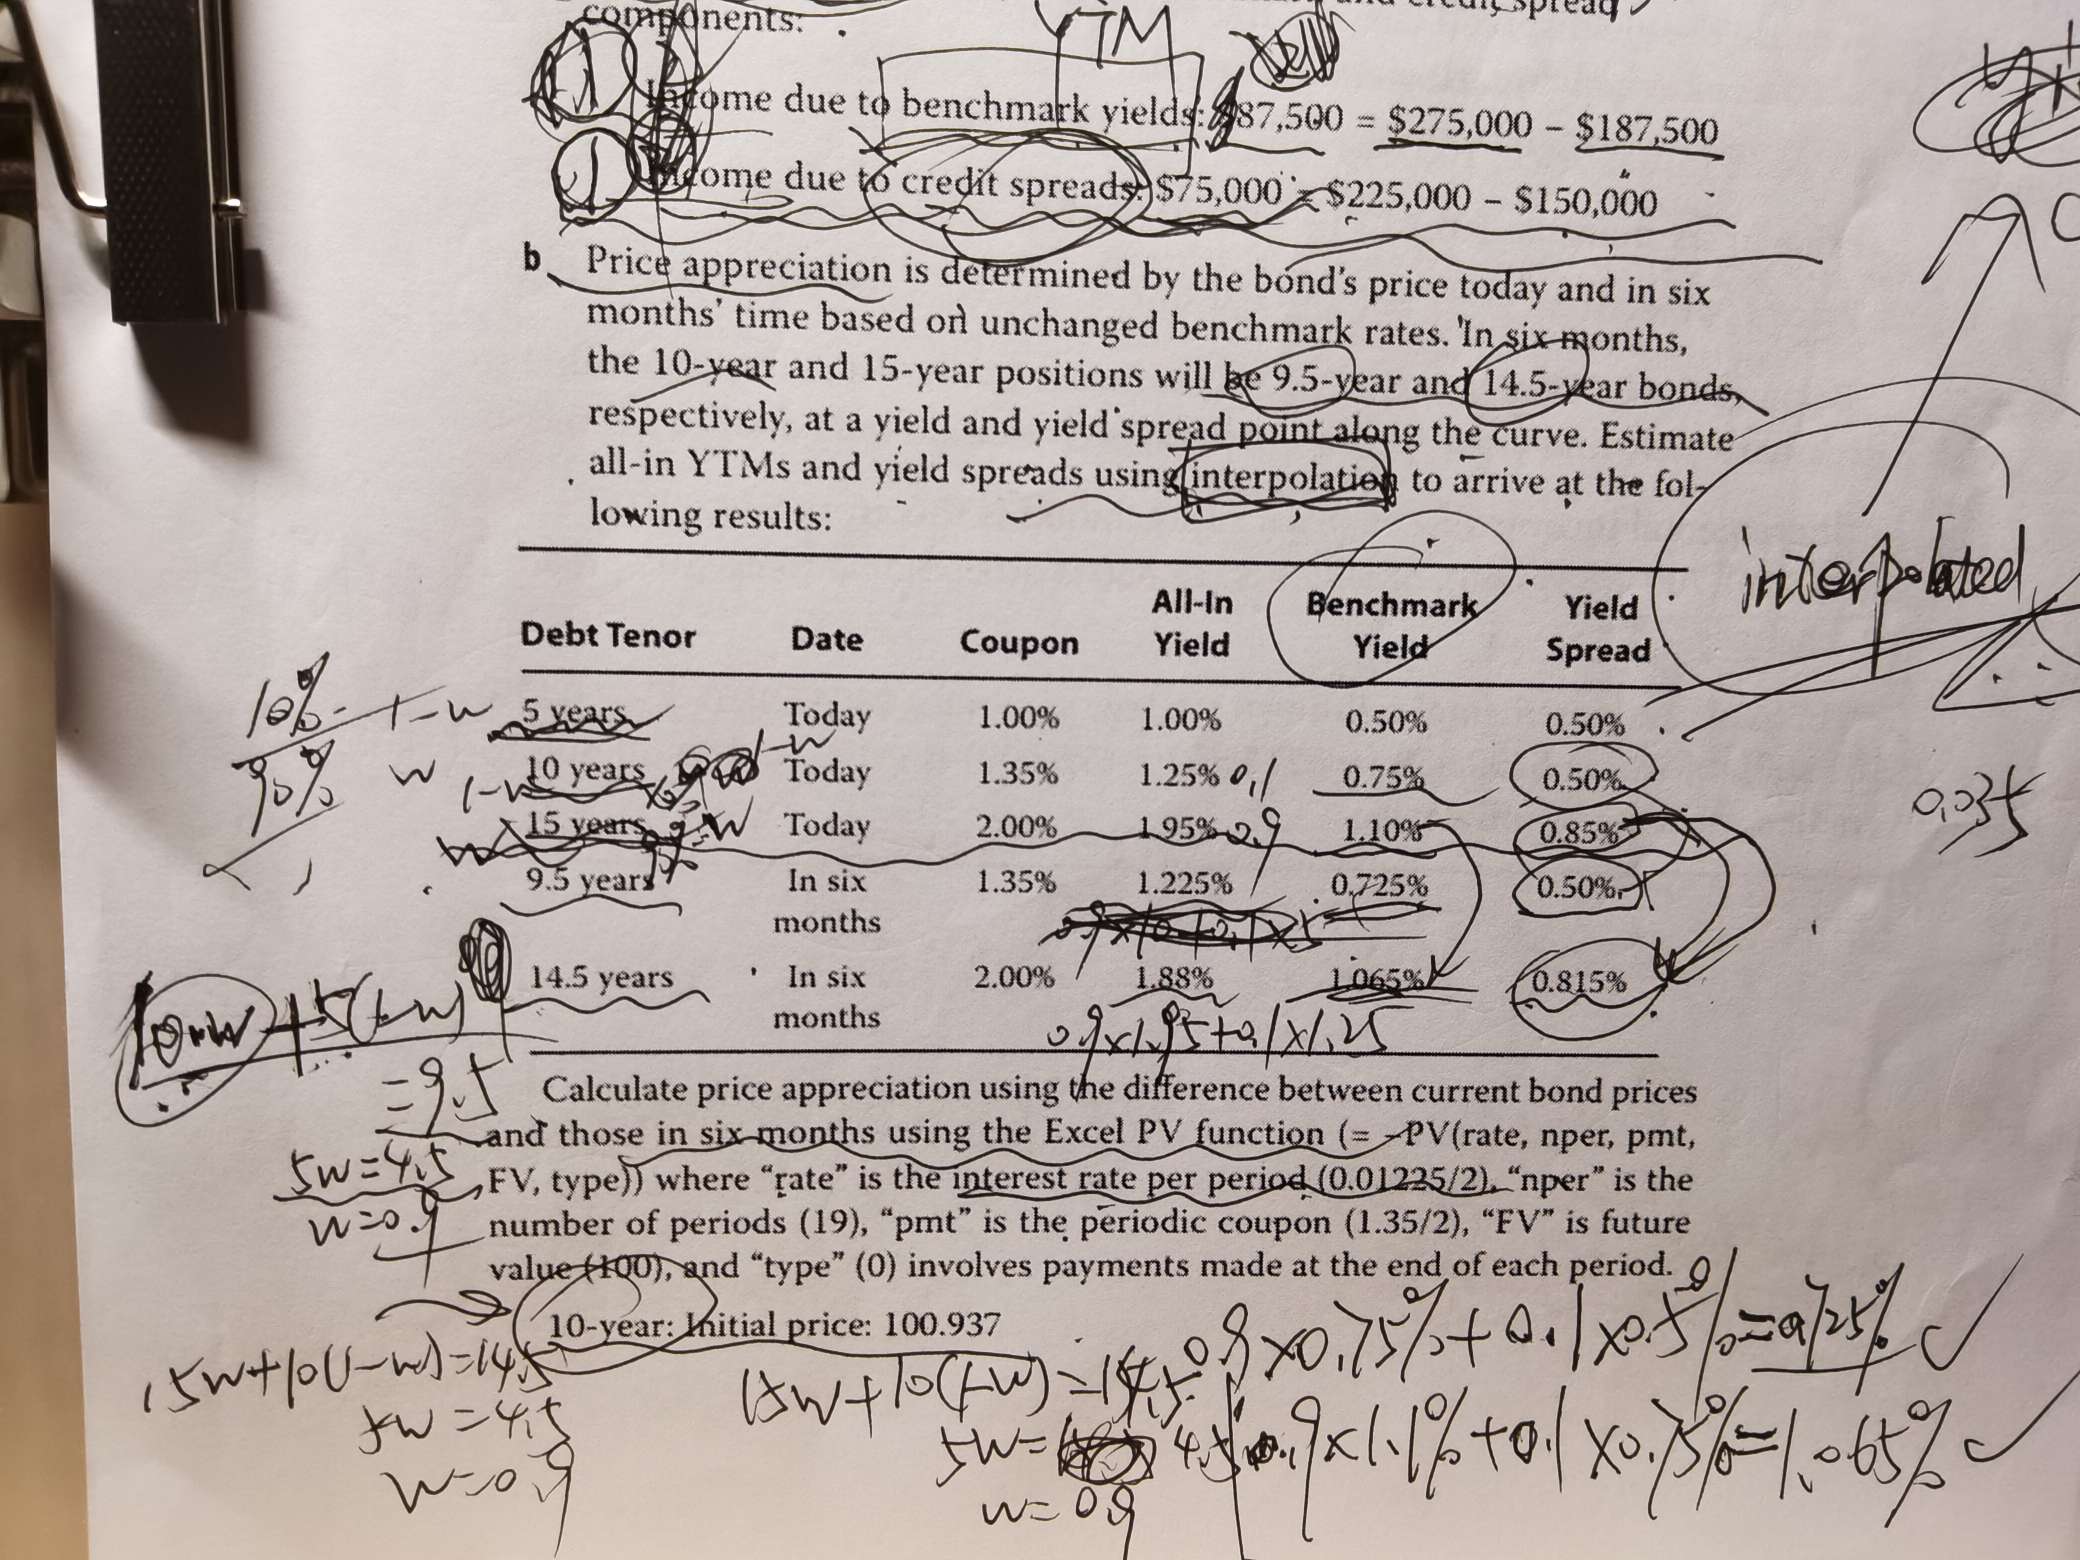 components:
YTM
Income due to benchmark yields: $87,500 = $275,000 – $187,500
Income due to credit spreads: $75,000 = $225,000 – $150,000
b Price appreciation is determined by the bond's price today and in six
months' time based on unchanged benchmark rates. In six months,
the 10-year and 15-year positions will be 9.5-year and 14.5-year bonds,
respectively, at a yield and yield spread point along the curve. Estimate
all-in YTMs and yield spreads using interpolation to arrive at the fol-
lowing results:
interpolated
Debt Tenor Date Coupon All-In Yield Benchmark Yield Yield Spread
10% 1-w
5 years Today 1.00% 1.00% 0.50% 0.50%
90% w
10 years Today 1.35% 1.25% 0.1 0.75% 0.50%
0.035
15 years Today 2.00% 1.95% 0.9 1.10% 0.85%
9.5 years In six months 1.35% 1.225% 0.725% 0.50%
14.5 years In six months 2.00% 1.88% 1.065% 0.815%
10w+5(1-w)
=9.5
5w=4.5
w=0.9
0.9x1.95+0.1x1.25
Calculate price appreciation using the difference between current bond prices
and those in six months using the Excel PV function (= –PV(rate, nper, pmt,
FV, type)) where "rate" is the interest rate per period (0.01225/2), "nper" is the
number of periods (19), "pmt" is the periodic coupon (1.35/2), "FV" is future
value (100), and "type" (0) involves payments made at the end of each period.
10-year: Initial price: 100.937
15w+10(1-w)=14.5
5w=4.5
w=0.9
15w+10(1-w)=14.5
5w= 4.5
w=0.9
0.9x0.75%+0.1x0.5%=0.725%
0.9x1.1%+0.1x0.75%=1.065%